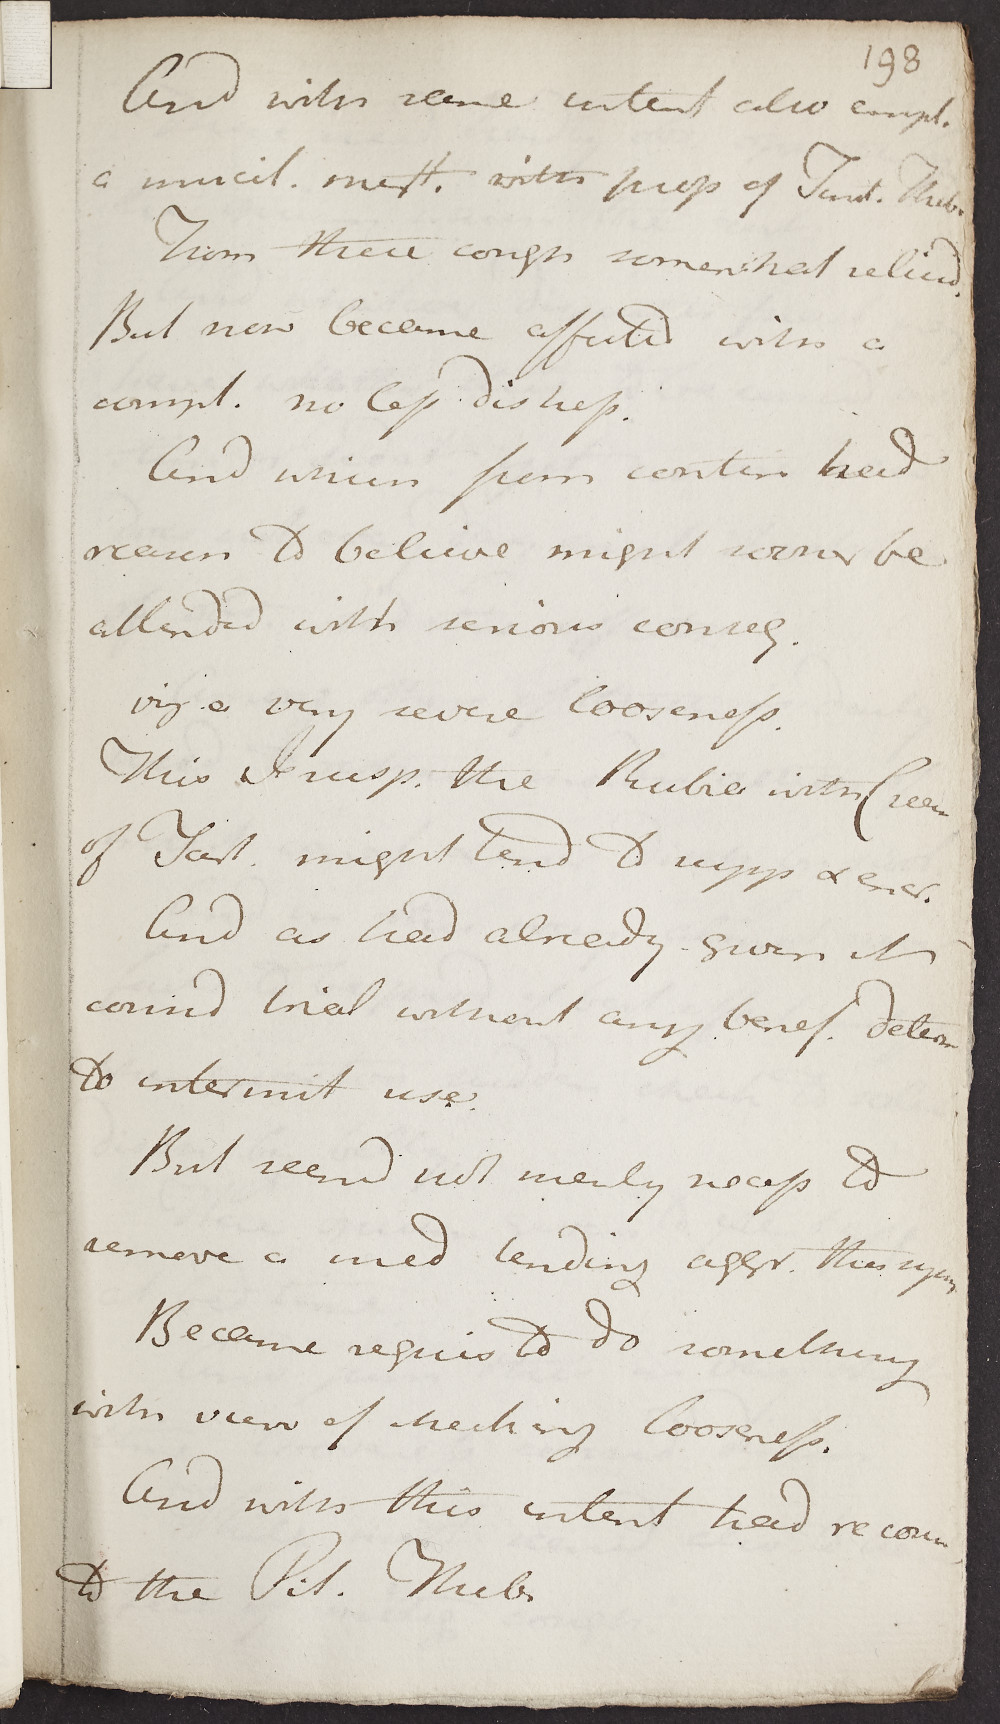 198
And with same intent also empl.
a mucil. mixt. with prep of Tinct. Theb.
From these cough somewhat reliev'd.
But now became affected with a
compl. no less distress.
And which from contin had
reason to believe might soon be
attended with serious conseq.
viz. a very severe looseness.
This I susp. the Rubia with Cream
of Tart. might tend to supp & encr.
And as had already given it
consid trial without any benef. determ
to intermit use.
But seemd not merly necess to
remove a med tending aggr. this sym
Became requis to do something
with view of checking looseness.
And with this intent had recour
to the Pil. Theb.